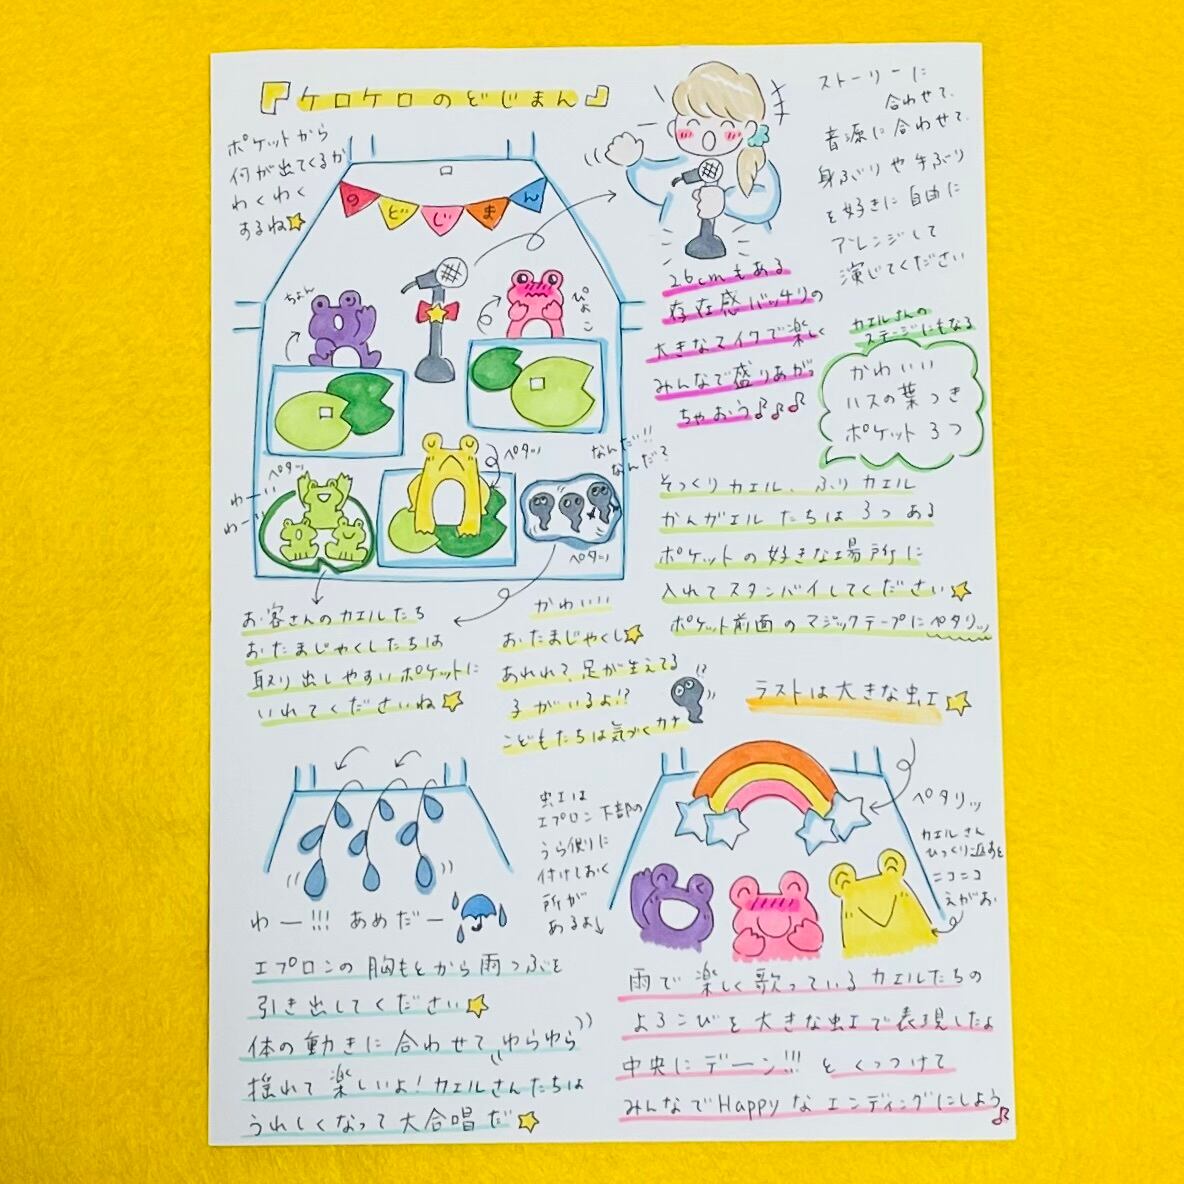 『ケロケロのどじまん』
ポケットから
何が出てくるか
わくわく
するね
のどじまん
ちょん
ぴょこ
ペタッ
わーい
わーい
ペタッ
なんだ!!
なんだ?
ペタッ
ストーリーに
合わせて、
音源に合わせて、
身ぶりや手ぶり
を好きに自由に
アレンジして
演じてください
26cmもある
存在感バッチリの
大きなマイクで楽しく
みんなで盛りあがっ
ちゃおう♪♪♪
カエルさんの
ステージにもなる
かわいい
ハスの葉つき
ポケット3つ
そっくりカエル、ふりカエル
かんがエルたちは3つある
ポケットの好きな場所に
入れてスタンバイしてください
ポケット前面のマジックテープにペタリッ
お客さんのカエルたち
おたまじゃくしたちは
取り出しやすいポケットに
いれてくださいね
かわいい
おたまじゃくし
あれれ?、足が生えてる
子がいるよ!?
こどもたちは気づくカナ
!?
ラストは大きな虹
わー!!! あめだー
エプロンの胸もとから雨つぶを
引き出してください
体の動きに合わせてゆらゆら
揺れて楽しいよ!カエルさんたちは
うれしくなって大合唱だ
虹は
エプロン下部の
うら側に
付けておく
所が
あるよ↓
ペタリッ
カエルさん
ひっくり返すと
ニコニコ
えがお
雨で楽しく歌っているカエルたちの
よろこびを大きな虹で表現したよ
中央にデーン!!!とくっつけて
みんなでHappyなエンディングにしよう♪